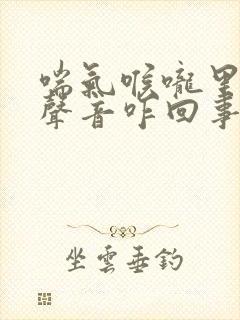 喘氣喉嚨里
聲音咋回事
坐雲垂釣